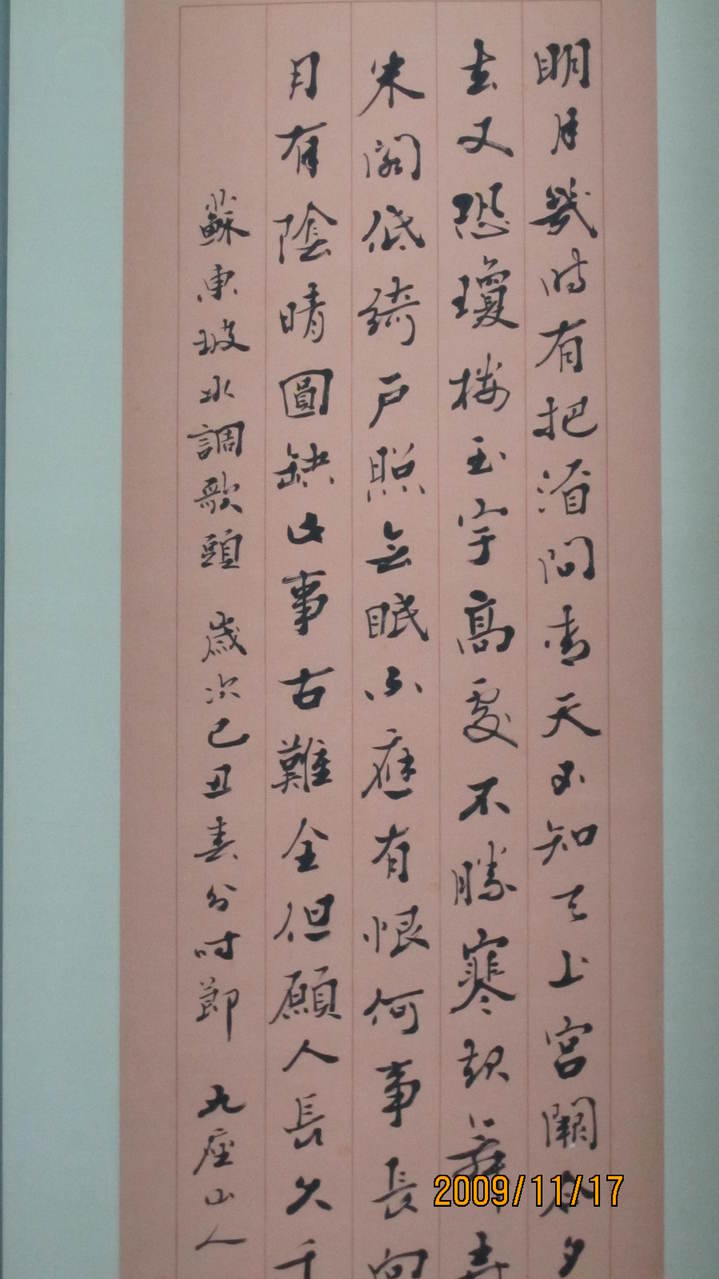 明月幾時有把酒問青天不知天上宮闕今夕
去又恐瓊樓玉宇高處不勝寒起舞弄
朱閣低綺戶照無眠不應有恨何事長向
月有陰晴圓缺此事古難全但願人長久千
蘇東坡水調歌頭 歲次己丑春分時節 九座山人
2009/11/17